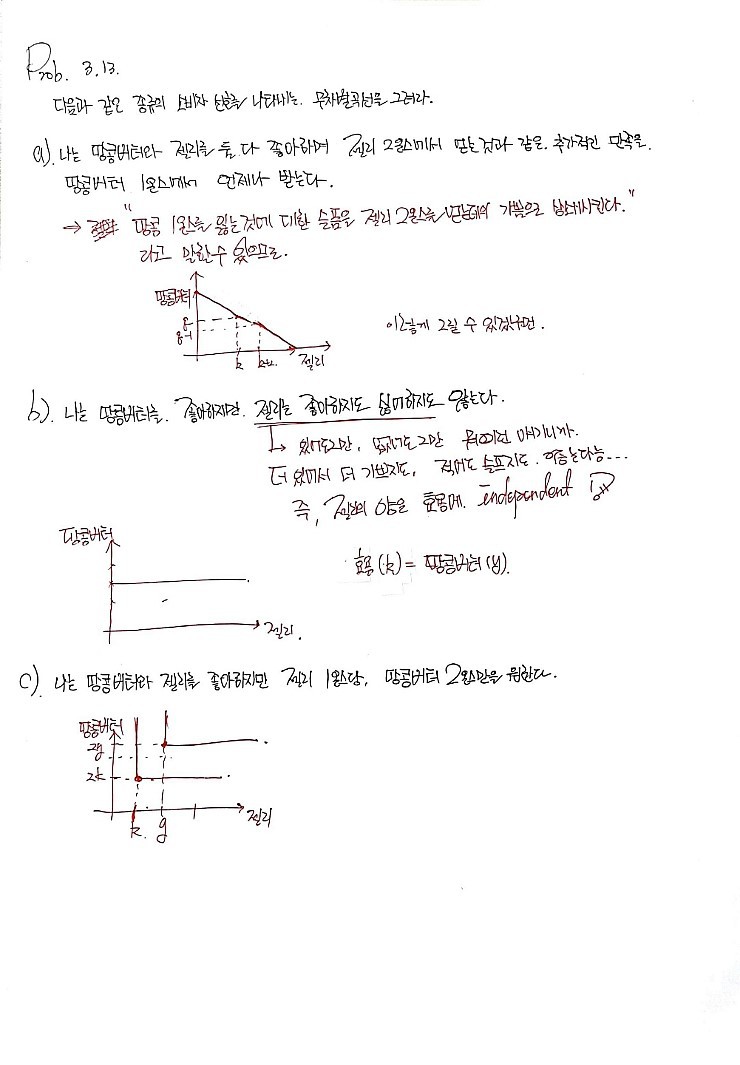 Prob. 3.13.
다음과 같은 종류의 소비자 선호를 나타내는 무차별곡선을 그려라.
a). 나는 땅콩버터와 젤리를 둘 다 좋아하며 젤리 2온스에서 얻는것과 같은 추가적인 만족을.
땅콩버터 1온스에서 언제나 받는다.
→ "땅콩 1온스를 잃는것에 대한 슬픔을 젤리 2온스를 기쁨으로 상쇄시킨다."
라고 말할 수 있으므로.
땅콩버터
g
g-1
k
젤리
이렇게 그릴 수 있겠구먼.
b). 나는 땅콩버터를. 좋아하지만. 젤리는 좋아하지도 싫어하지도 않는다.
↳ 있어도그만, 없어도그만 얘기니까.
더 있어서 더 기쁘지도, 적어도 슬프지도.
즉, 젤리의 양은 효용에. independent
땅콩버터
젤리.
효용(k) = 땅콩버터(y).
c). 나는 땅콩버터와 젤리를 좋아하지만 젤리 1온스당, 땅콩버터 2온스만을 원한다.
땅콩버터
2g
2k
젤리
k. g